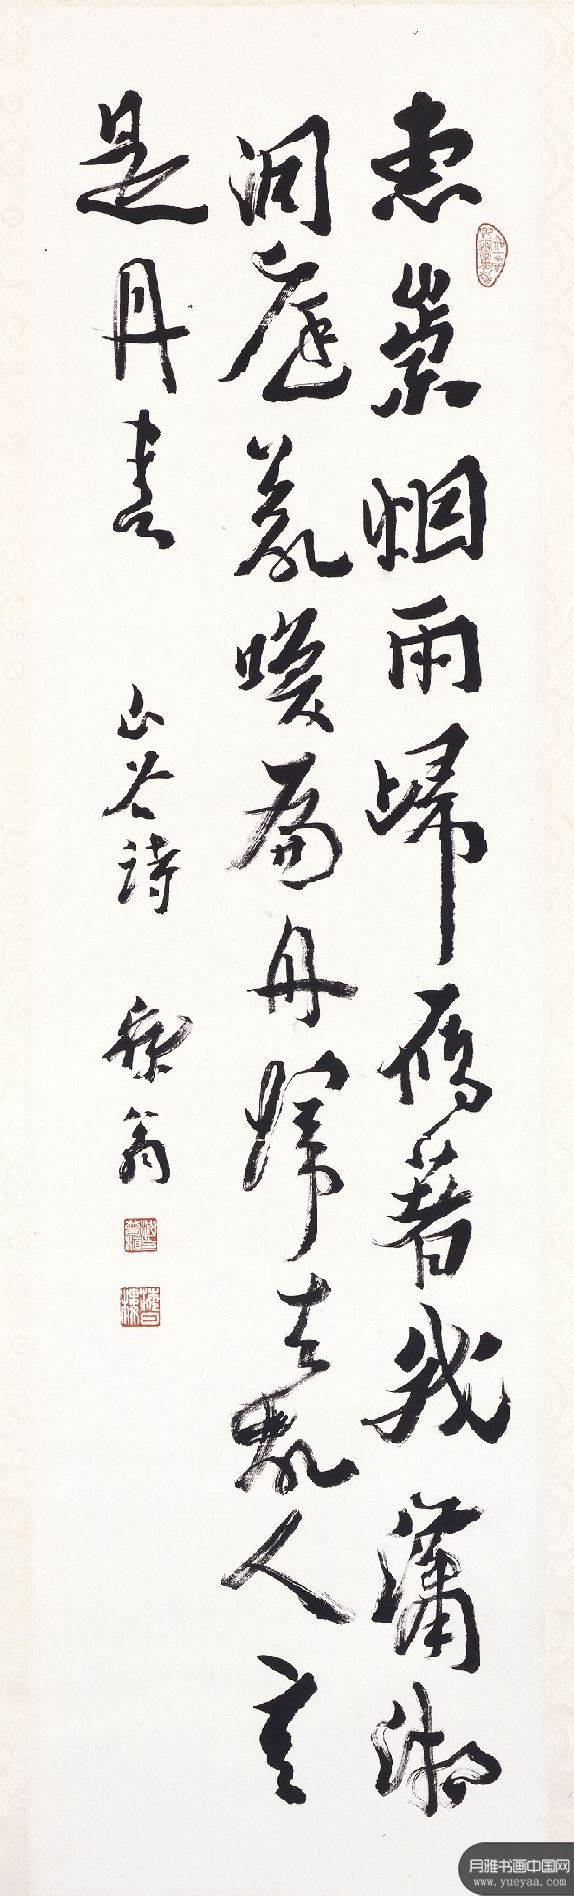 惠崇烟雨歸雁著我瀟湘
洞庭喚扁舟歸去故人言
是丹青
山谷詩 翁
月雅书画中国网
www.yueyaa.com